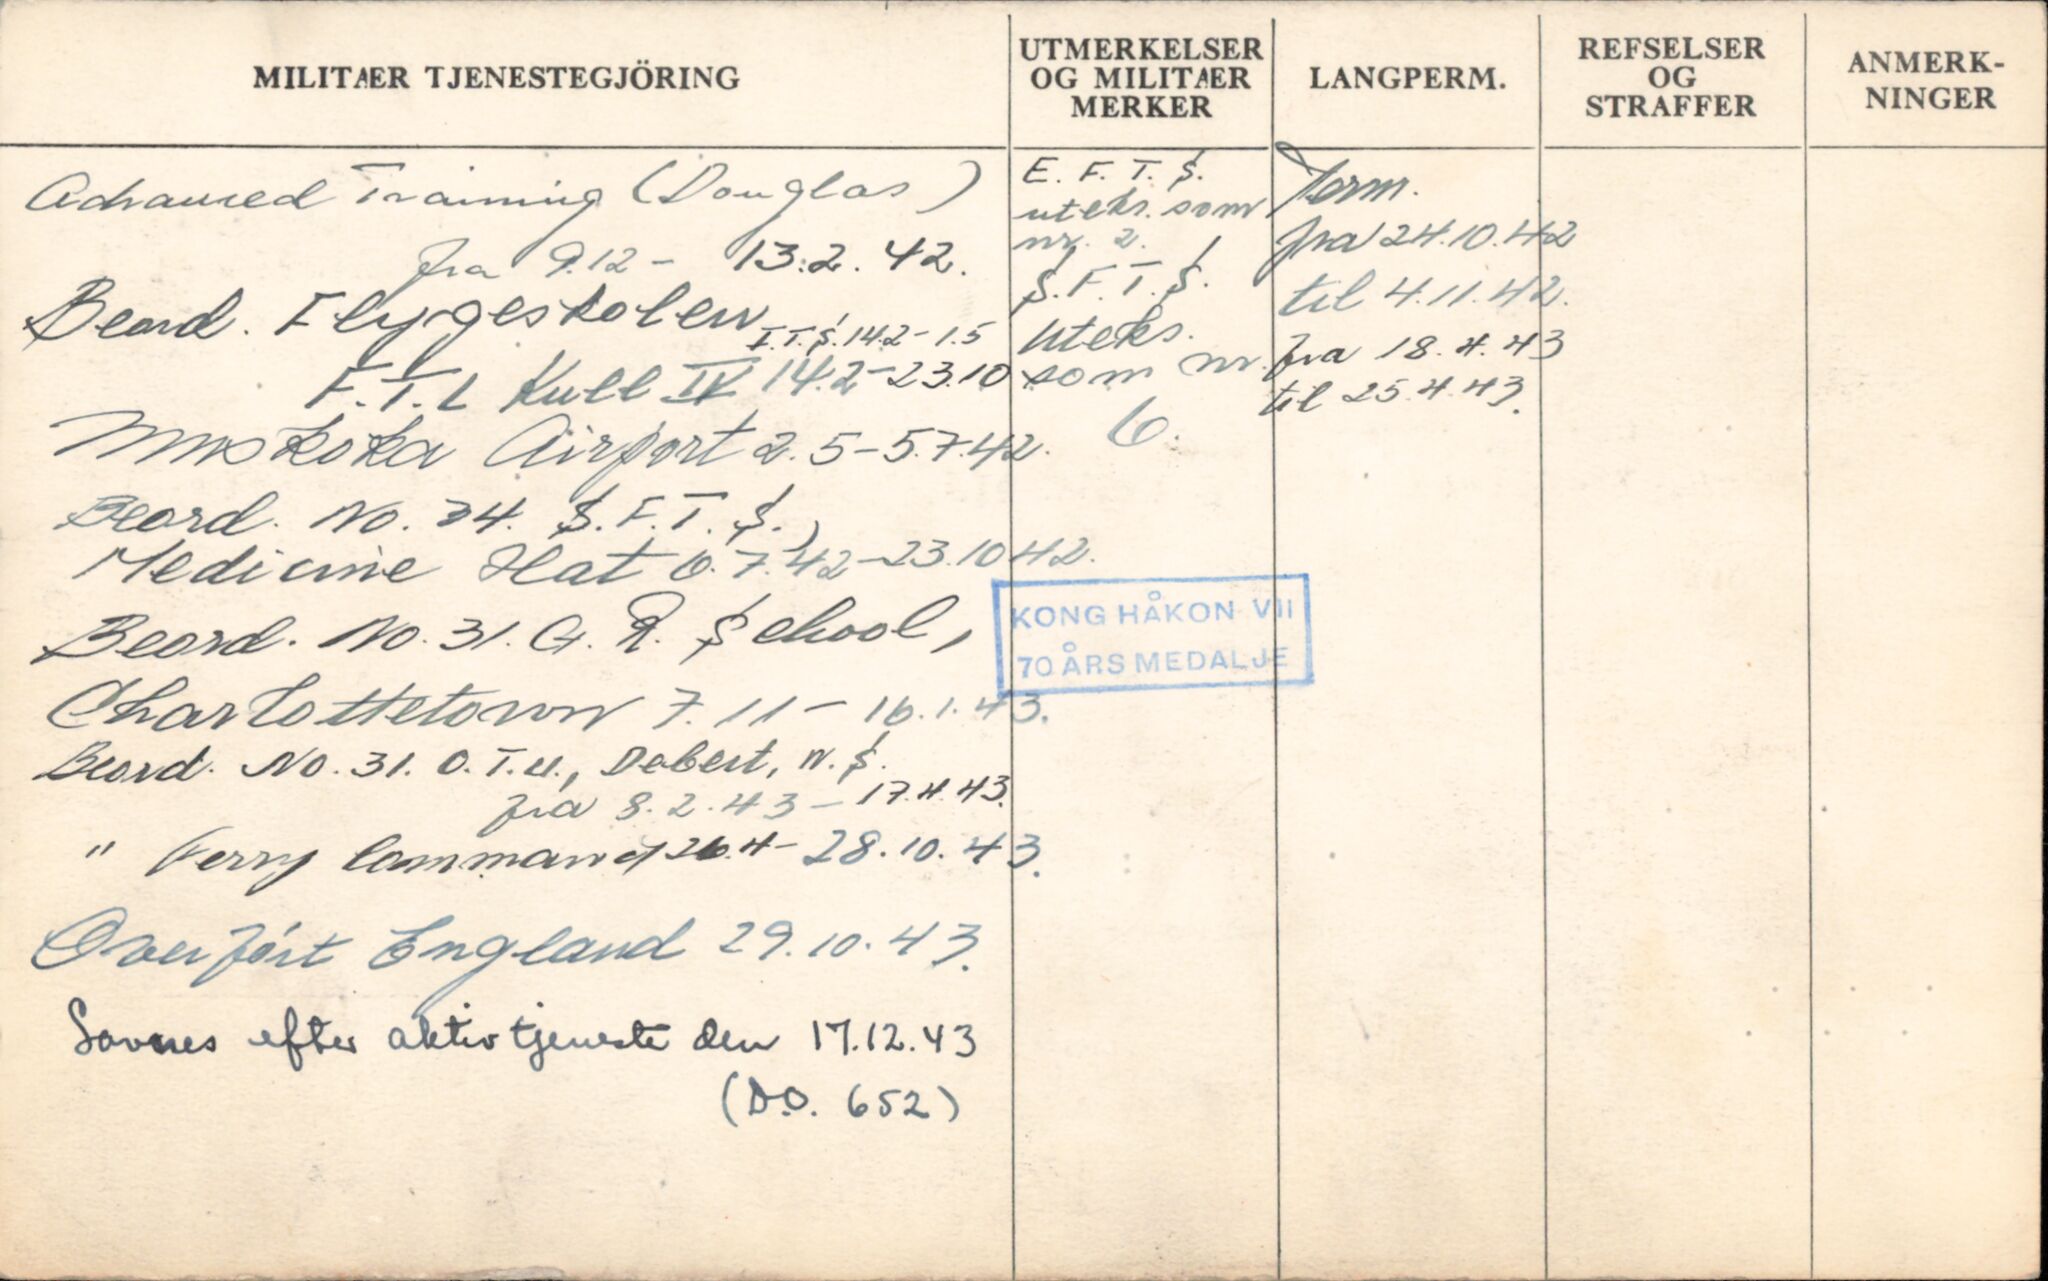 MILITÆR TJENESTEGJÖRING
UTMERKELSER
OG MILITÆR
MERKER
LANGPERM.
REFSELSER
OG
STRAFFER
ANMERK-
NINGER
Advanced Training (Douglas)
fra 9.12 - 13.2.42.
Beord. Flygeskolen
I.T.S. 14.2 - 1.5
F.T.L Kull IV 14.2 - 23.10
Muskoka Airport 2.5 - 5.7.42.
Beord. No. 34. S.F.T.S.,
Medicine Hat 6.7.42 - 23.10 42.
Beord. No. 31. G. R. School,
Charlottetown 7.11 - 16.1.43.
Beord. No. 31. O.T.U., Debert, N.S.
fra 8.2.43 - 17.4.43.
" Ferry Command 26.4 - 28.10.43.
Overfört England 29.10.43.
Savnes efter aktiv tjeneste den 17.12.43
(D.O. 652)
E. F. T. S.
uteks. som
nr. 2.
S.F.T.S.
Uteks.
som nr.
6.
KONG HÅKON VII
70 ÅRS MEDALJE
Perm.
fra 24.10.42
til 4.11.42.
fra 18.4.43
til 25.4.43.